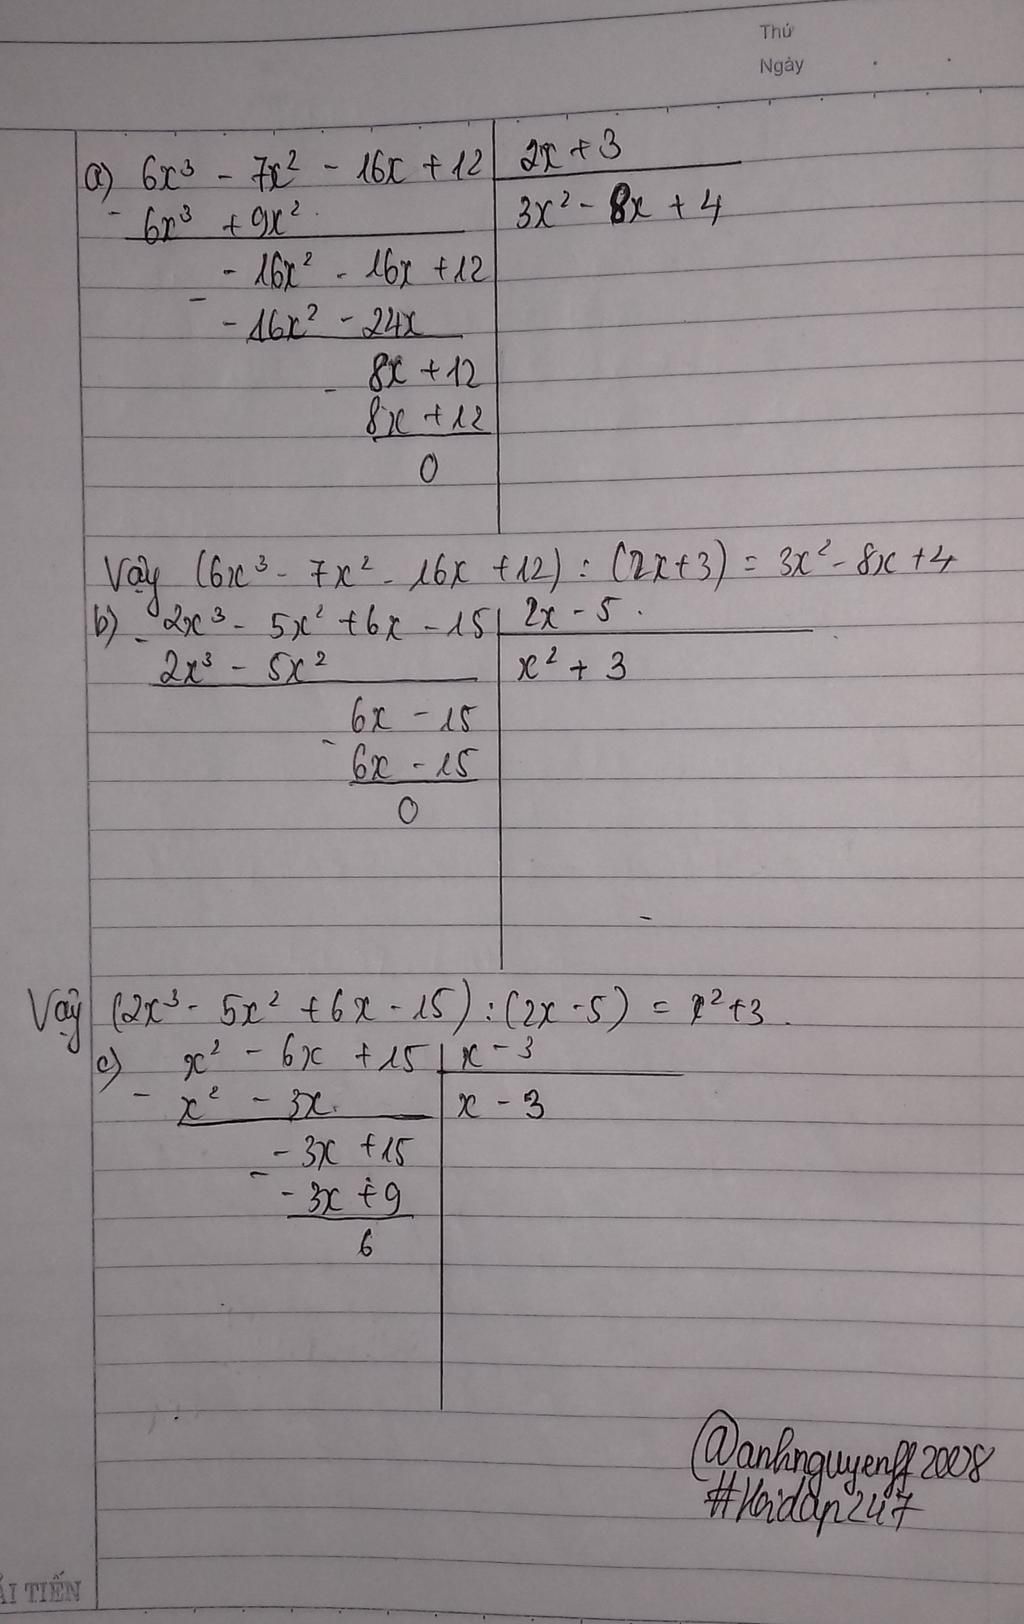 Thứ
Ngày
a) 6x³ - 7x² - 16x + 12 2x + 3
- 6x³ + 9x² 3x² - 8x + 4
- 16x² - 16x + 12
-
- 16x² - 24x
- 8x + 12
8x + 12
0
Vậy (6x³ - 7x² - 16x + 12) : (2x + 3) = 3x² - 8x + 4
b) - 2x³ - 5x² + 6x - 15 2x - 5
2x³ - 5x² x² + 3
6x - 15
-
6x - 15
0
Vậy (2x³ - 5x² + 6x - 15) : (2x - 5) = x² + 3
c) x² - 6x + 15 x - 3
- x² - 3x x - 3
- 3x + 15
-
- 3x + 9
6
@anhnguyenff2008
#Hoidap247
ẢI TIẾN